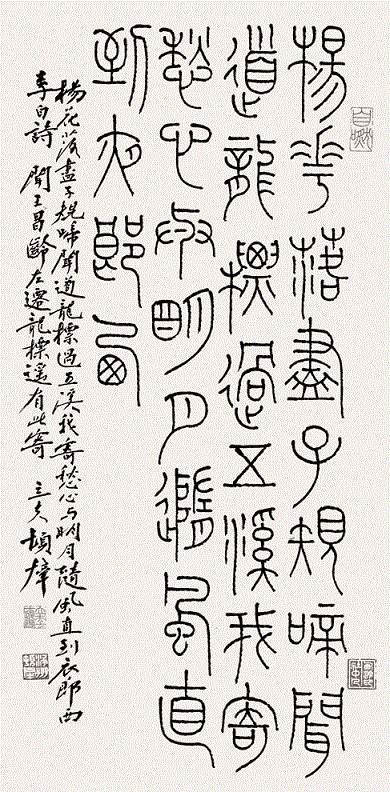 楊花落盡子規啼聞
道龍標過五溪我寄
愁心與明月隨風直
到夜郎西
楊花落盡子規啼聞道龍標過五溪我寄愁心与明月隨風直到夜郎西
李白詩 聞王昌齡左遷龍標遙有此寄